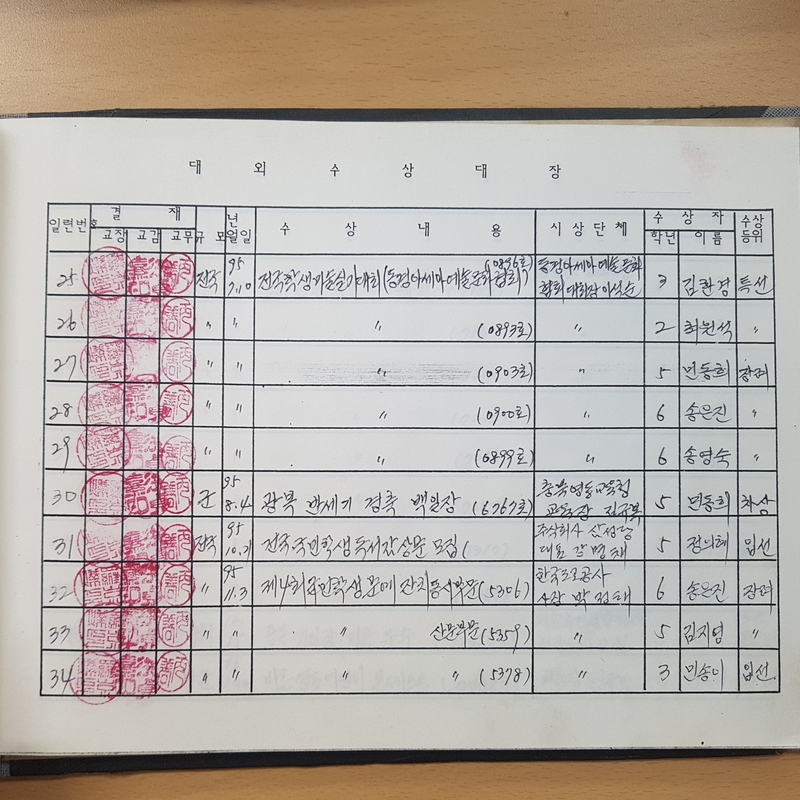 대 외 수 상 대 장
일련번호 결 재 규모 년월일 수 상 내 용 시상단체 수 상 자 수상등위
교장 교감 교무 학년 이름
25 전국 95 7.10 전국학생미술실기대회(동경아세아예술문화협회) (0896호) 동경아세아예술문화 3 김환경 특선
협회 대회장
26 〃 〃 〃 (0893호) 〃 2 최원석 〃
27 〃 〃 〃 (0903호) 〃 5 민동희 장려
28 〃 〃 〃 (0900호) 〃 6 송은진 〃
29 〃 〃 〃 (0899호) 〃 6 송영숙 〃
30 군 95 8.4 광복 반세기 경축 백일장 (6767호) 충북영동교육청 5 민동희 차상
교육장
31 전국 95 10.21 전국 국민학생 독서감상문 모집( 주식회사 삼성당 5 정의혜 입선
대표 강명채
32 〃 95 11.3 제4회 국민학생 문예 잔치 동시부문(5306) 한국도로공사 6 송은진 장려
사장 박정태
33 〃 〃 〃 산문부문(5359) 〃 5 김지영 〃
34 〃 〃 〃 〃 (5378) 〃 3 민송이 입선